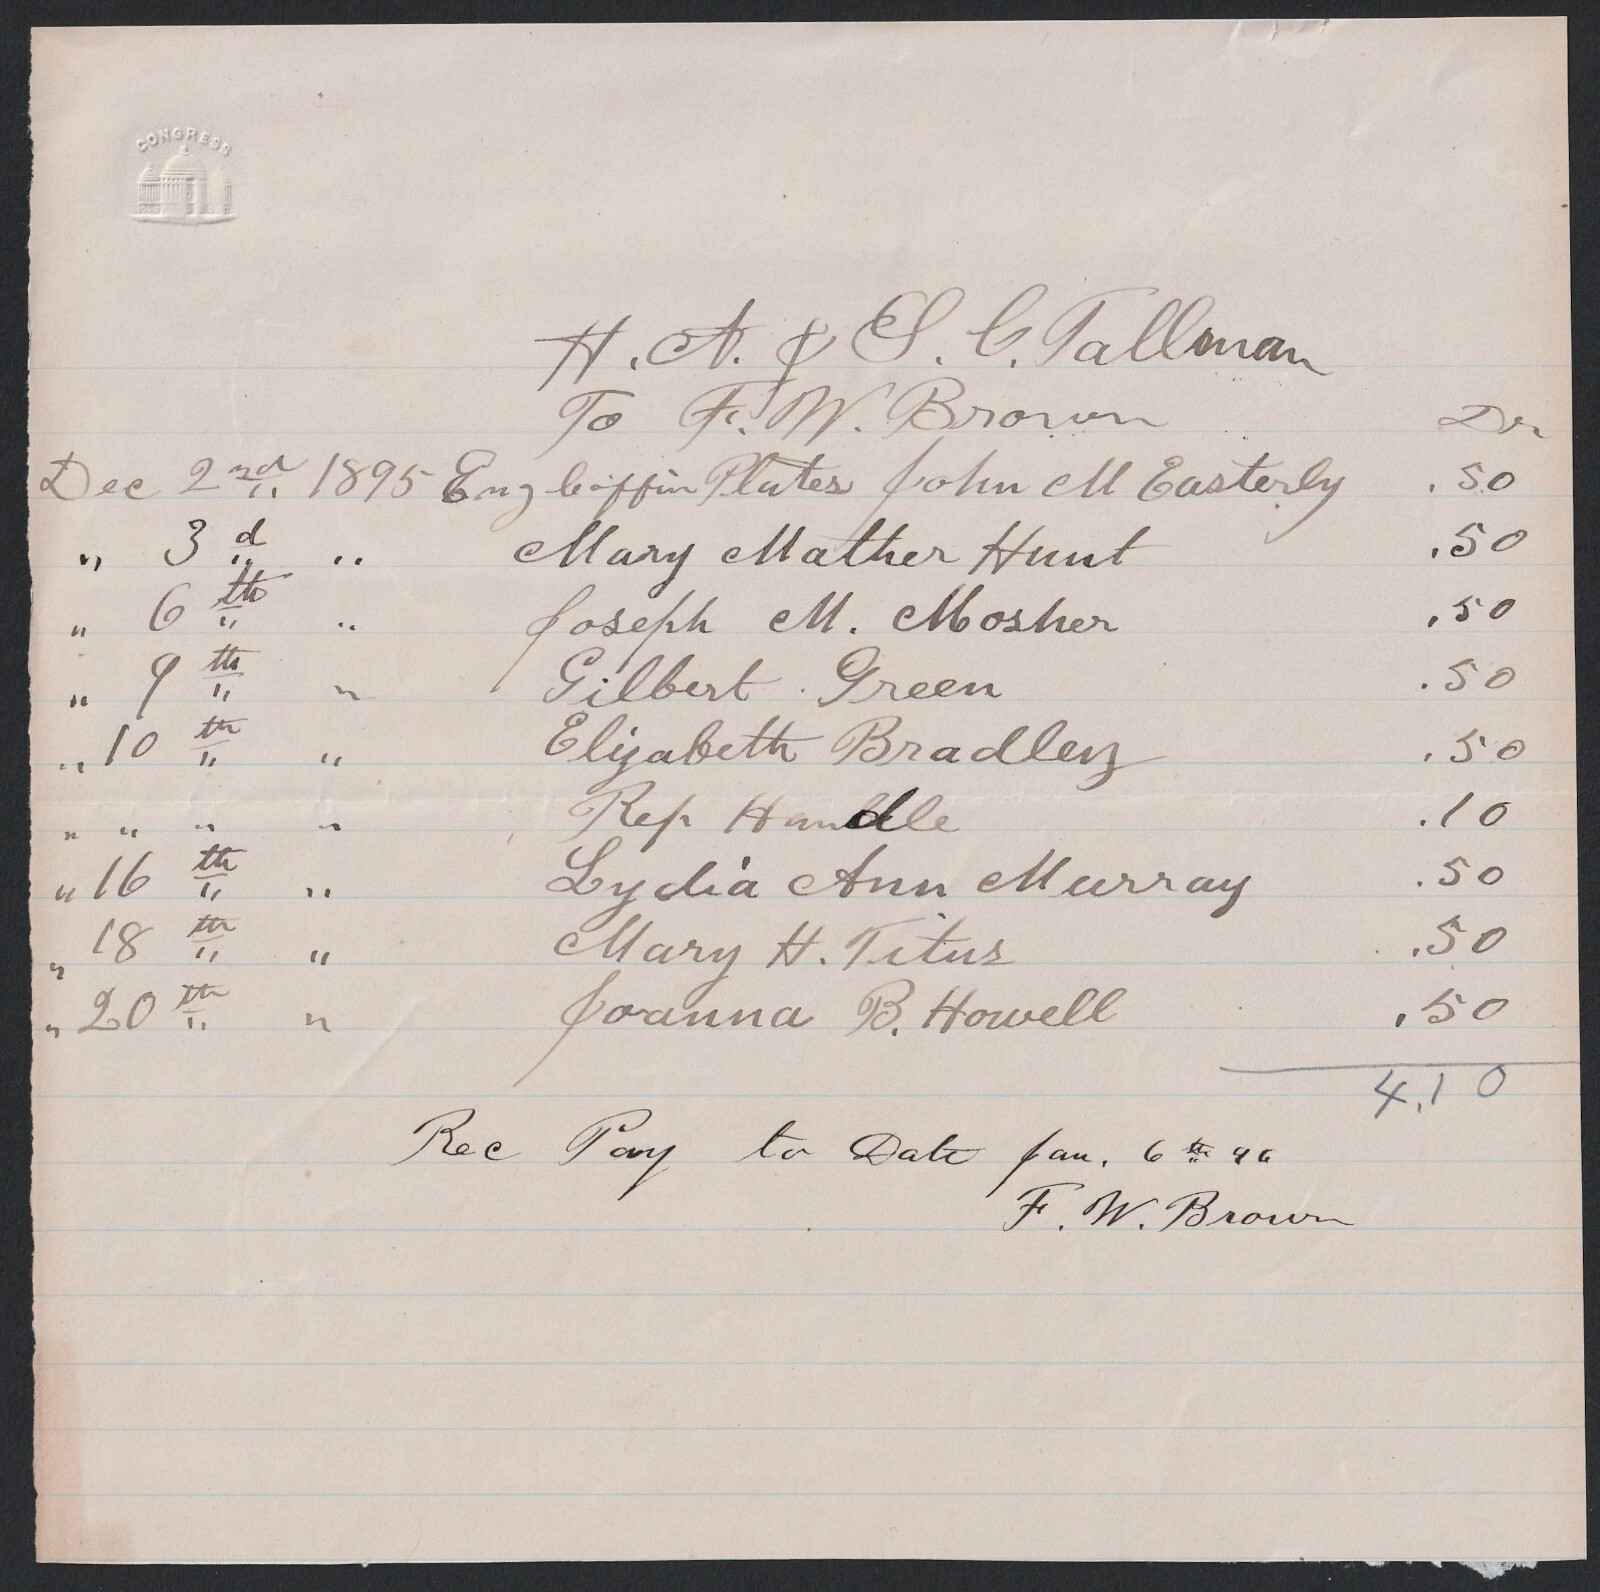 CONGRESS
H. A. & S. C. Tallman
To F. W. Brown Dr
Dec 2nd 1895 Eng Coffin Plates John M Easterly .50
" 3d " Mary Mather Hunt .50
" 6th " Joseph M. Mosher .50
" 9th " Gilbert Green .50
" 10th " Elizabeth Bradley .50
" " " " Rep Handle .10
" 16th " Lydia Ann Murray .50
" 18th " Mary H. Titus .50
" 20th " Joanna B. Howell .50
4.10
Rec Pay to Date Jan. 6th 96
F. W. Brown